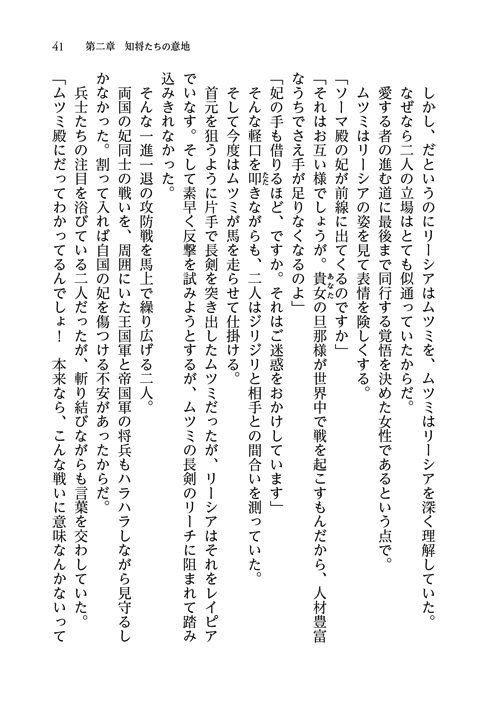 41　第二章　知将たちの意地
しかし、だというのにリーシアはムツミを、ムツミはリーシアを深く理解していた。
なぜなら二人の立場はとても似通っていたからだ。
愛する者の進む道に最後まで同行する覚悟を決めた女性であるという点で。
ムツミはリーシアの姿を見て表情を険しくする。
「ソーマ殿の妃が前線に出てくるのですか」
「それはお互い様でしょうが。貴女の旦那様が世界中で戦を起こすもんだから、人材豊富
あなた
なうちでさえ手が足りなくなるのよ」
「妃の手も借りるほど、ですか。それはご迷惑をおかけしています」
そんな軽口を叩きながらも、二人はジリジリと相手との間合いを測っていた。
たた
そして今度はムツミが馬を走らせて仕掛ける。
首元を狙うように片手で長剣を突き出したムツミだったが、リーシアはそれをレイピア
でいなす。そして素早く反撃を試みようとするが、ムツミの長剣のリーチに阻まれて踏み
込みきれなかった。
そんな一進一退の攻防戦を馬上で繰り広げる二人。
両国の妃同士の戦いを、周囲にいた王国軍と帝国軍の将兵もハラハラしながら見守るし
かなかった。割って入れば自国の妃を傷つける不安があったからだ。
兵士たちの注目を浴びている二人だったが、斬り結びながらも言葉を交わしていた。
「ムツミ殿にだってわかってるんでしょ！　本来なら、こんな戦いに意味なんかないって